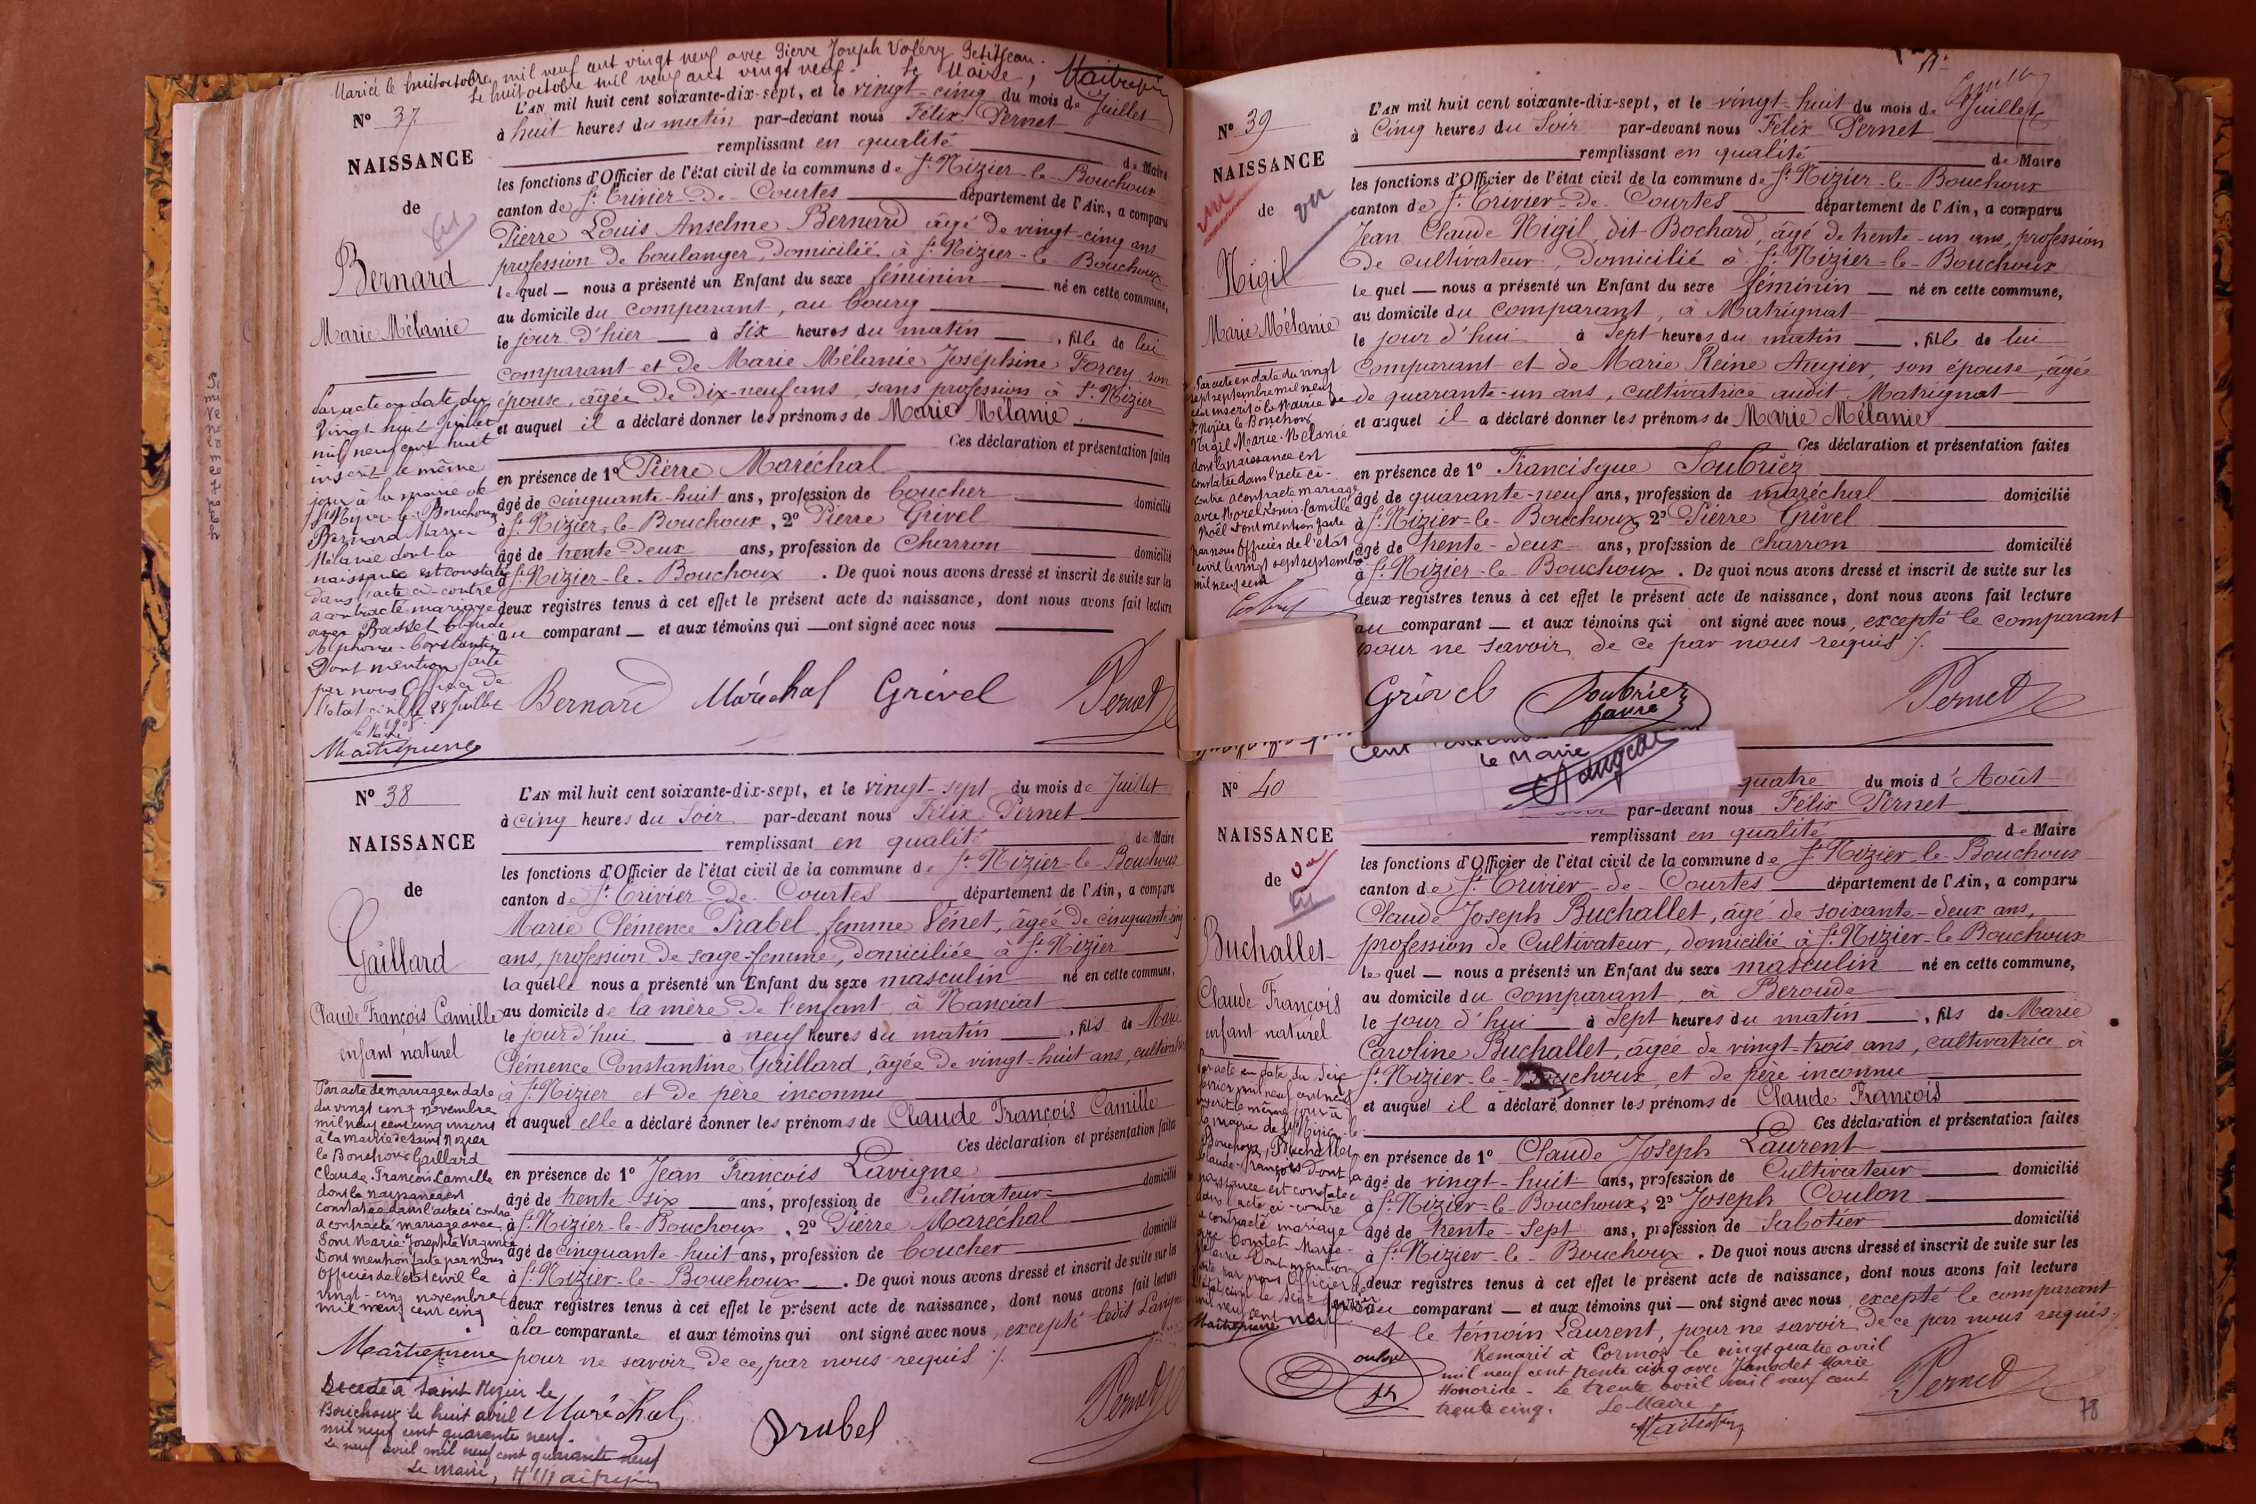 Mariée le huit octobre mil neuf cent vingt neuf avec Pierre Joseph Valéry Petitjean.
Le huit octobre mil neuf cent vingt neuf. Le Maire,
N° 37
NAISSANCE
de
Bernard
Marie Mélanie
L'AN mil huit cent soixante-dix-sept, et le vingt-cinq du mois de Juillet
à huit heures du matin par-devant nous Félix Pernet
remplissant en qualité de Maire
les fonctions d'Officier de l'état civil de la commune de St Nizier-le-Bouchoux
canton de St Trivier-de-Courtes département de l'Ain, a comparu
Pierre Louis Anselme Bernard, âgé de vingt-cinq ans
profession de boulanger, domicilié à St Nizier-le-Bouchoux
lequel nous a présenté un Enfant du sexe féminin né en cette commune,
au domicile du comparant, au bourg
le jour d'hier à six heures du matin, fille de lui
comparant et de Marie Mélanie Joséphine Forcey, son
épouse, âgée de dix-neuf ans, sans profession à St Nizier
et auquel il a déclaré donner les prénoms de Marie Mélanie
Ces déclaration et présentation faites
en présence de 1° Pierre Maréchal
âgé de cinquante-huit ans, profession de boucher domicilié
à St Nizier-le-Bouchoux, 2° Pierre Grivel
âgé de trente deux ans, profession de charron domicilié
à St Nizier-le-Bouchoux. De quoi nous avons dressé et inscrit de suite sur les
deux registres tenus à cet effet le présent acte de naissance, dont nous avons fait lecture
au comparant et aux témoins qui ont signé avec nous
Bernard Maréchal Grivel Pernet
Par acte en date du
vingt huit Juillet
mil neuf cent huit
inscrit le même
jour à la mairie de
St Nizier-le-Bouchoux
Bernard Marie
Mélanie dont la
naissance est constatée
dans l'acte ci-contre
a contracté mariage
avec Basset Claude
Alphonse Constantin
Dont mention faite
par nous Officier de
l'état civil le 28 Juillet
1908.
le Maire
N° 38
NAISSANCE
de
Gaillard
Claude François Camille
enfant naturel
L'AN mil huit cent soixante-dix-sept, et le vingt-sept du mois de Juillet
à cinq heures du Soir par-devant nous Félix Pernet
remplissant en qualité de Maire
les fonctions d'Officier de l'état civil de la commune de St Nizier-le-Bouchoux
canton de St Trivier-de-Courtes département de l'Ain, a comparu
Marie Clémence Prabel, femme Vénet, âgée de cinquante-cinq
ans, profession de sage-femme, domiciliée à St Nizier
laquelle nous a présenté un Enfant du sexe masculin né en cette commune,
au domicile de la mère de l'enfant à Nanciat
le jour d'hui à neuf heures du matin, fils de Marie
Clémence Constantine Gaillard, âgée de vingt-huit ans, cultivatrice
à St Nizier et de père inconnu
et auquel elle a déclaré donner les prénoms de Claude François Camille
Ces déclaration et présentation faites
en présence de 1° Jean François Lavigne
âgé de trente six ans, profession de Cultivateur domicilié
à St Nizier-le-Bouchoux, 2° Pierre Maréchal
âgé de cinquante-huit ans, profession de boucher domicilié
à St Nizier-le-Bouchoux. De quoi nous avons dressé et inscrit de suite sur les
deux registres tenus à cet effet le présent acte de naissance, dont nous avons fait lecture
à la comparante et aux témoins qui ont signé avec nous, excepté ledit Lavigne
pour ne savoir de ce, par nous requis
Maréchal Prabel Pernet
Par acte de mariage en date
du vingt cinq novembre
mil neuf cent cinq inscrit
à la mairie de Saint Nizier
le Bouchoux Gaillard
Claude François Camille
dont la naissance est
constatée dans l'acte ci contre
a contracté mariage avec
Marie Josephte Virginie
Dont mention faite par nous
Officier de l'état civil le
vingt-cinq novembre
mil neuf cent cinq
Décédé à Saint Nizier le
Bouchoux le huit avril
mil neuf cent quarante neuf.
Le neuf avril mil neuf cent quarante neuf
Le Maire,
N° 39
NAISSANCE
de
vu
Nigil
Marie Mélanie
L'AN mil huit cent soixante-dix-sept, et le vingt-huit du mois de Juillet
à Cinq heures du Soir par-devant nous Félix Pernet
remplissant en qualité de Maire
les fonctions d'Officier de l'état civil de la commune de St Nizier-le-Bouchoux
canton de St Trivier-de-Courtes département de l'Ain, a comparu
Jean Claude Nigil, dit Bochard, âgé de trente-un ans, profession
de cultivateur, domicilié à St Nizier-le-Bouchoux
lequel nous a présenté un Enfant du sexe féminin né en cette commune,
au domicile du comparant, à Matrignat
le jour d'hui à sept heures du matin, fille de lui
comparant et de Marie Reine Augier, son épouse, âgée
de quarante-un ans, cultivatrice audit Matrignat
et auquel il a déclaré donner les prénoms de Marie Mélanie
Ces déclaration et présentation faites
en présence de 1° Francisque Soubriez
âgé de quarante-neuf ans, profession de maréchal domicilié
à St Nizier-le-Bouchoux, 2° Pierre Grivel
âgé de trente-deux ans, profession de charron domicilié
à St Nizier-le-Bouchoux. De quoi nous avons dressé et inscrit de suite sur les
deux registres tenus à cet effet le présent acte de naissance, dont nous avons fait lecture
au comparant et aux témoins qui ont signé avec nous, excepté le comparant
pour ne savoir, de ce par nous requis
Grivel Soubriez Pernet
Par acte en date du vingt
sept septembre mil neuf
cent inscrit à la Mairie de
St Nizier le Bouchoux
Nigil Marie-Mélanie
dont la naissance est
constatée dans l'acte ci-
contre a contracté mariage
avec Morel Louis Camille
Noël dont mention faite
par nous Officier de l'état
civil le vingt sept septembre
mil neuf cent
cent
le Maire
N° 40
NAISSANCE
de
vu
Buchallet
Claude François
enfant naturel
quatre du mois d'Août
par-devant nous Félix Pernet
remplissant en qualité de Maire
les fonctions d'Officier de l'état civil de la commune de St Nizier-le-Bouchoux
canton de St Trivier-de-Courtes département de l'Ain, a comparu
Claude Joseph Buchallet, âgé de soixante-deux ans,
profession de Cultivateur, domicilié à St Nizier-le-Bouchoux
lequel nous a présenté un Enfant du sexe masculin né en cette commune,
au domicile du comparant, à Beroude
le jour d'hui à Sept heures du matin, fils de Marie
Caroline Buchallet, âgée de vingt-trois ans, cultivatrice à
St Nizier-le-Bouchoux, et de père inconnu
et auquel il a déclaré donner les prénoms de Claude François
Ces déclaration et présentation faites
en présence de 1° Claude Joseph Laurent
âgé de vingt-huit ans, profession de Cultivateur domicilié
à St Nizier-le-Bouchoux, 2° Joseph Coulon
âgé de trente-sept ans, profession de Sabotier domicilié
à St Nizier-le-Bouchoux. De quoi nous avons dressé et inscrit de suite sur les
deux registres tenus à cet effet le présent acte de naissance, dont nous avons fait lecture
au comparant et aux témoins qui ont signé avec nous, excepté le comparant
et le témoin Laurent, pour ne savoir, de ce par nous requis.
Par acte en date du seize
février mil neuf cent neuf
inscrit le même jour à
la mairie de St Nizier-le-
Bouchoux, Buchallet
Claude-François dont la
naissance est constatée
dans l'acte ci-contre
a contracté mariage
avec Comtet Marie
Dont mention
faite par nous Officier de
l'état civil le seize février
mil neuf cent neuf.
Remarié à Cormoz le vingt quatre avril
mil neuf cent trente cinq avec Vanodet Marie
Honorine - Le trente avril mil neuf cent
trente cinq. Le Maire,
Pernet
78